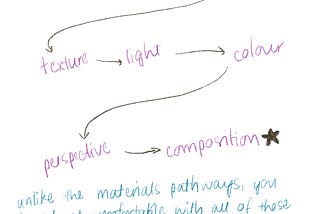 texture → light → colour
perspective → composition ★
unlike the materials pathways, you
comfortable with all of these